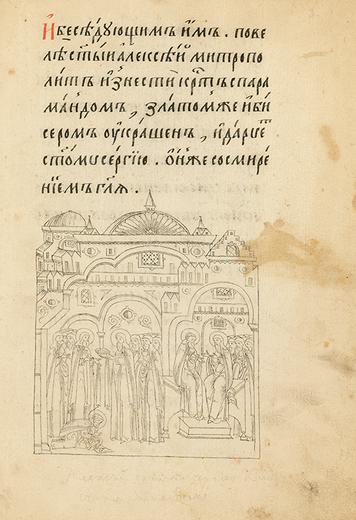 И бесѣдующимъ имъ. пове
лѣ ст҃ыи алексѣи митропо
литъ изнести кр҇тъ с пара
мандомъ, златомже и би
серомъ оукрашенъ, и дарꙋе
ст҃омꙋ сергїю. онже со смире
нїемъ гл҃я.